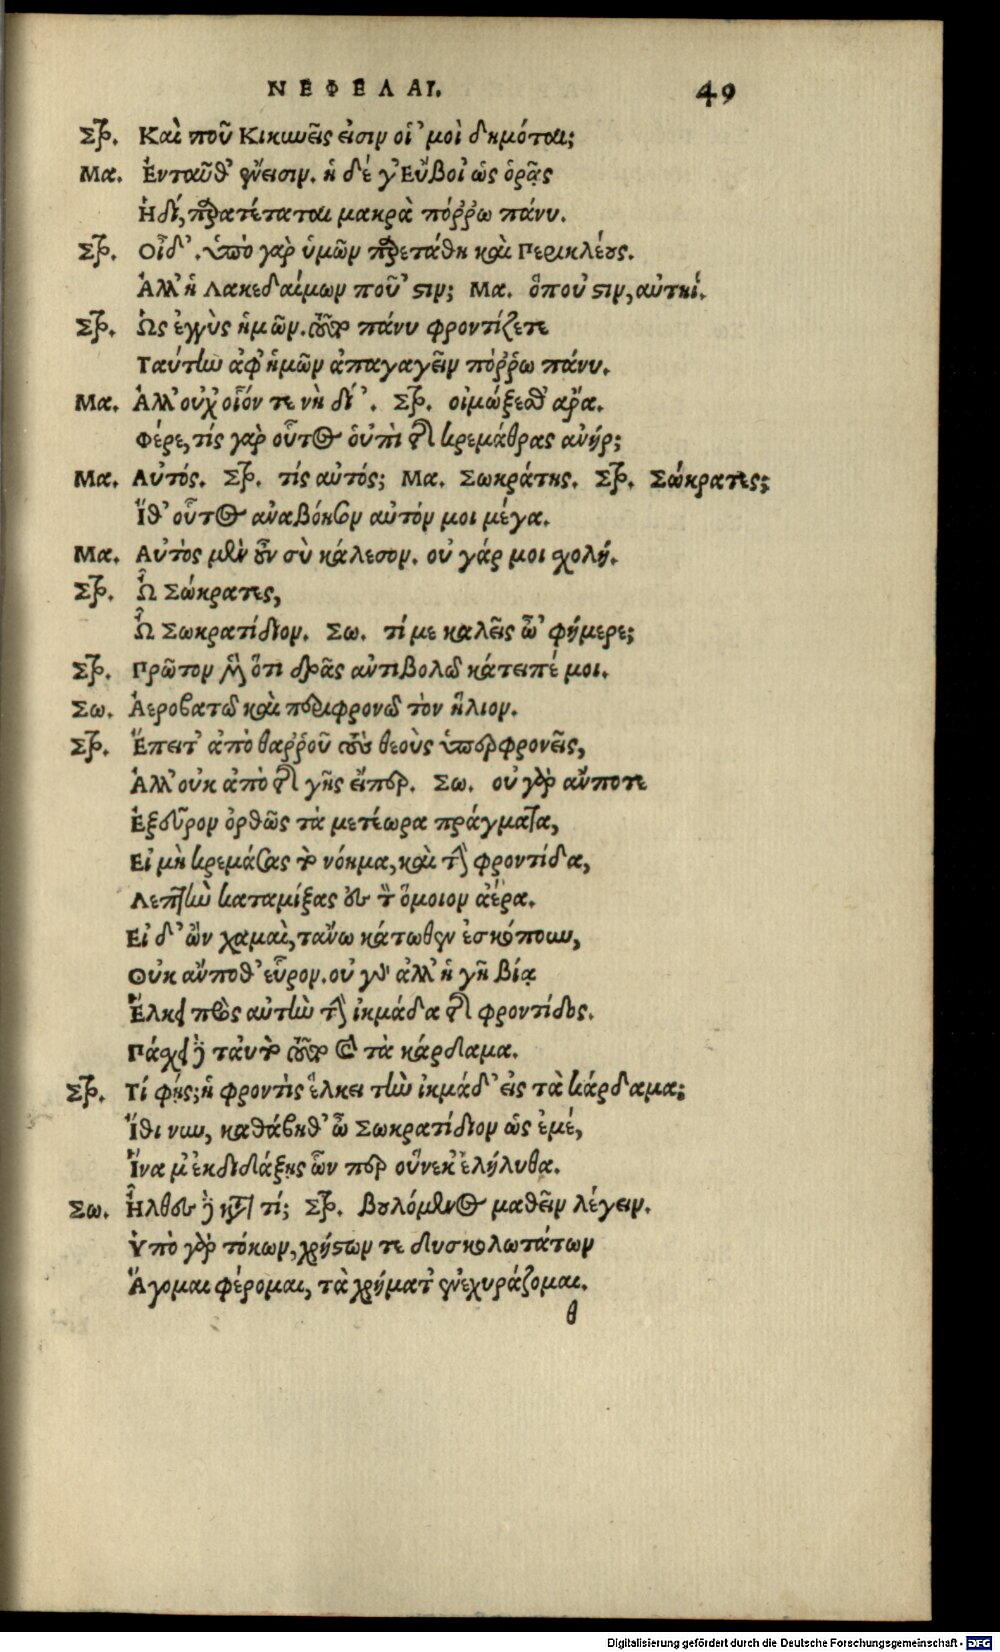 ΝΕΦΕΛΑΙ. 49
Στρ. Καὶ ποῦ Κικυνεῖς εἰσιν οἱ 'μοὶ δημόται;
Μα. Ἐνταῦθ' ἔνεισιν. ἡ δέ γ' Εὔβοι' ὡς ὁρᾷς
Ἡδὶ, παρατέταται μακρὰ πόῤῥω πάνυ.
Στρ. Οἶδ'. ὑπὸ γὰρ ὑμῶν παρετάθη καὶ Περικλέους.
Ἀλλ' ἡ Λακεδαίμων ποῦ 'στιν; Μα. ὅπου 'στιν, αὑτηί.
Στρ. Ὡς ἐγγὺς ἡμῶν. τοῦτο πάνυ φροντίζετε
Ταύτην ἀφ' ἡμῶν ἀπαγαγεῖν πόῤῥω πάνυ.
Μα. Ἀλλ' οὐχ οἷόν τε νὴ δί'. Στρ. οἰμώξεσθ' ἄρα.
Φέρε, τίς γὰρ οὗτος οὑπὶ τῆς κρεμάθρας ἀνήρ;
Μα. Αὐτός. Στρ. τίς αὐτός; Μα. Σωκράτης. Στρ. Σώκρατες;
Ἴθ' οὗτος ἀναβόησον αὐτόν μοι μέγα.
Μα. Αὐτὸς μὲν οὖν σὺ κάλεσον. οὐ γάρ μοι σχολή.
Στρ. Ὦ Σώκρατες,
Ὦ Σωκρατίδιον. Σω. τί με καλεῖς ὦ 'φήμερε;
Στρ. Πρῶτον μὲν ὅτι δρᾷς ἀντιβολῶ κάτειπέ μοι.
Σω. Ἀεροβατῶ καὶ περιφρονῶ τὸν ἥλιον.
Στρ. Ἔπειτ' ἀπὸ θαῤῥοῦ τοὺς θεοὺς ὑπερφρονεῖς,
Ἀλλ' οὐκ ἀπὸ τῆς γῆς εἴπερ. Σω. οὐ γὰρ ἄν ποτε
Ἐξεῦρον ὀρθῶς τὰ μετέωρα πράγματα,
Εἰ μὴ κρεμάσας τὸ νόημα, καὶ τὴν φροντίδα,
Λεπτὴν καταμίξας εἰς τὸν ὅμοιον ἀέρα.
Εἰ δ' ὢν χαμαὶ, τἄνω κάτωθεν ἐσκόπουν,
Οὐκ ἄν ποθ' εὗρον. οὐ γὰρ ἀλλ' ἡ γῆ βίᾳ
Ἕλκει πρὸς αὑτὴν τὴν ἰκμάδα τῆς φροντίδος.
Πάσχει δὲ ταυτὸ τοῦτο καὶ τὰ κάρδαμα.
Στρ. Τί φῄς; ἡ φροντὶς ἕλκει τὴν ἰκμάδ' εἰς τὰ κάρδαμα;
Ἴθι νυν, κατάβηθ' ὦ Σωκρατίδιον ὡς ἐμέ,
Ἵνα μ' ἐκδιδάξῃς ὧν περ οὕνεκ' ἐλήλυθα.
Σω. Ἦλθες δὲ κατὰ τί; Στρ. βουλόμενος μαθεῖν λέγειν.
Ὑπὸ γὰρ τόκων, χρήστων τε δυσκολωτάτων
Ἄγομαι φέρομαι, τὰ χρήματ' ἐνεχυράζομαι.
θ
Digitalisierung gefördert durch die Deutsche Forschungsgemeinschaft - DFG